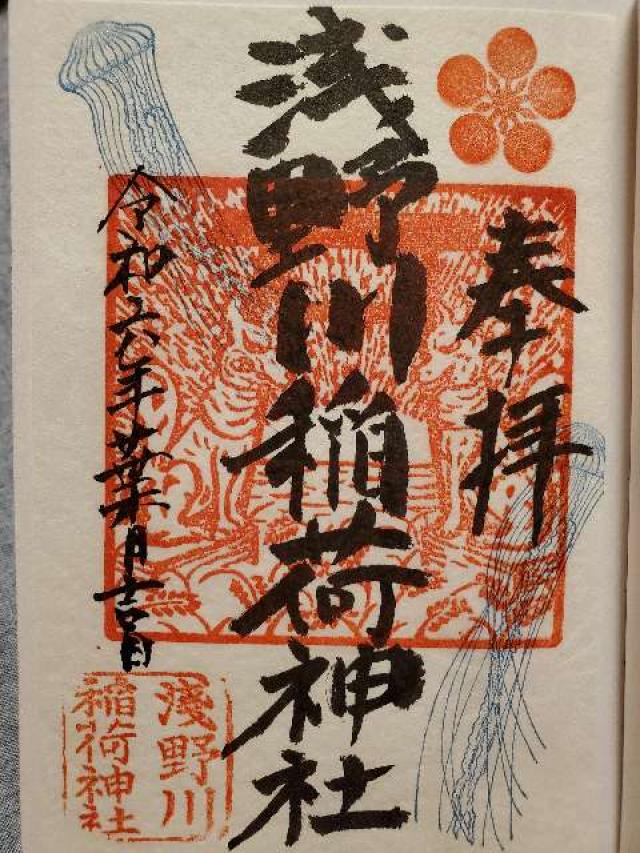 奉拝
浅野川稲荷神社
令和六年葉月吉日
淺野川
稲荷神社